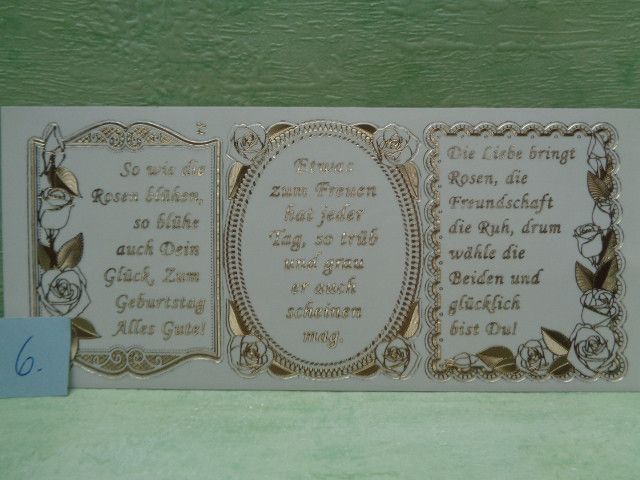 So wie die
Rosen blühen,
so blühe
auch Dein
Glück, Zum
Geburtstag
Alles Gute!
Etwas
zum Freuen
hat jeder
Tag, so trüb
und grau
er auch
scheinen
mag.
Die Liebe bringt
Rosen, die
Freundschaft
die Ruh, drum
wähle die
Beiden und
glücklich
bist Du!
6.